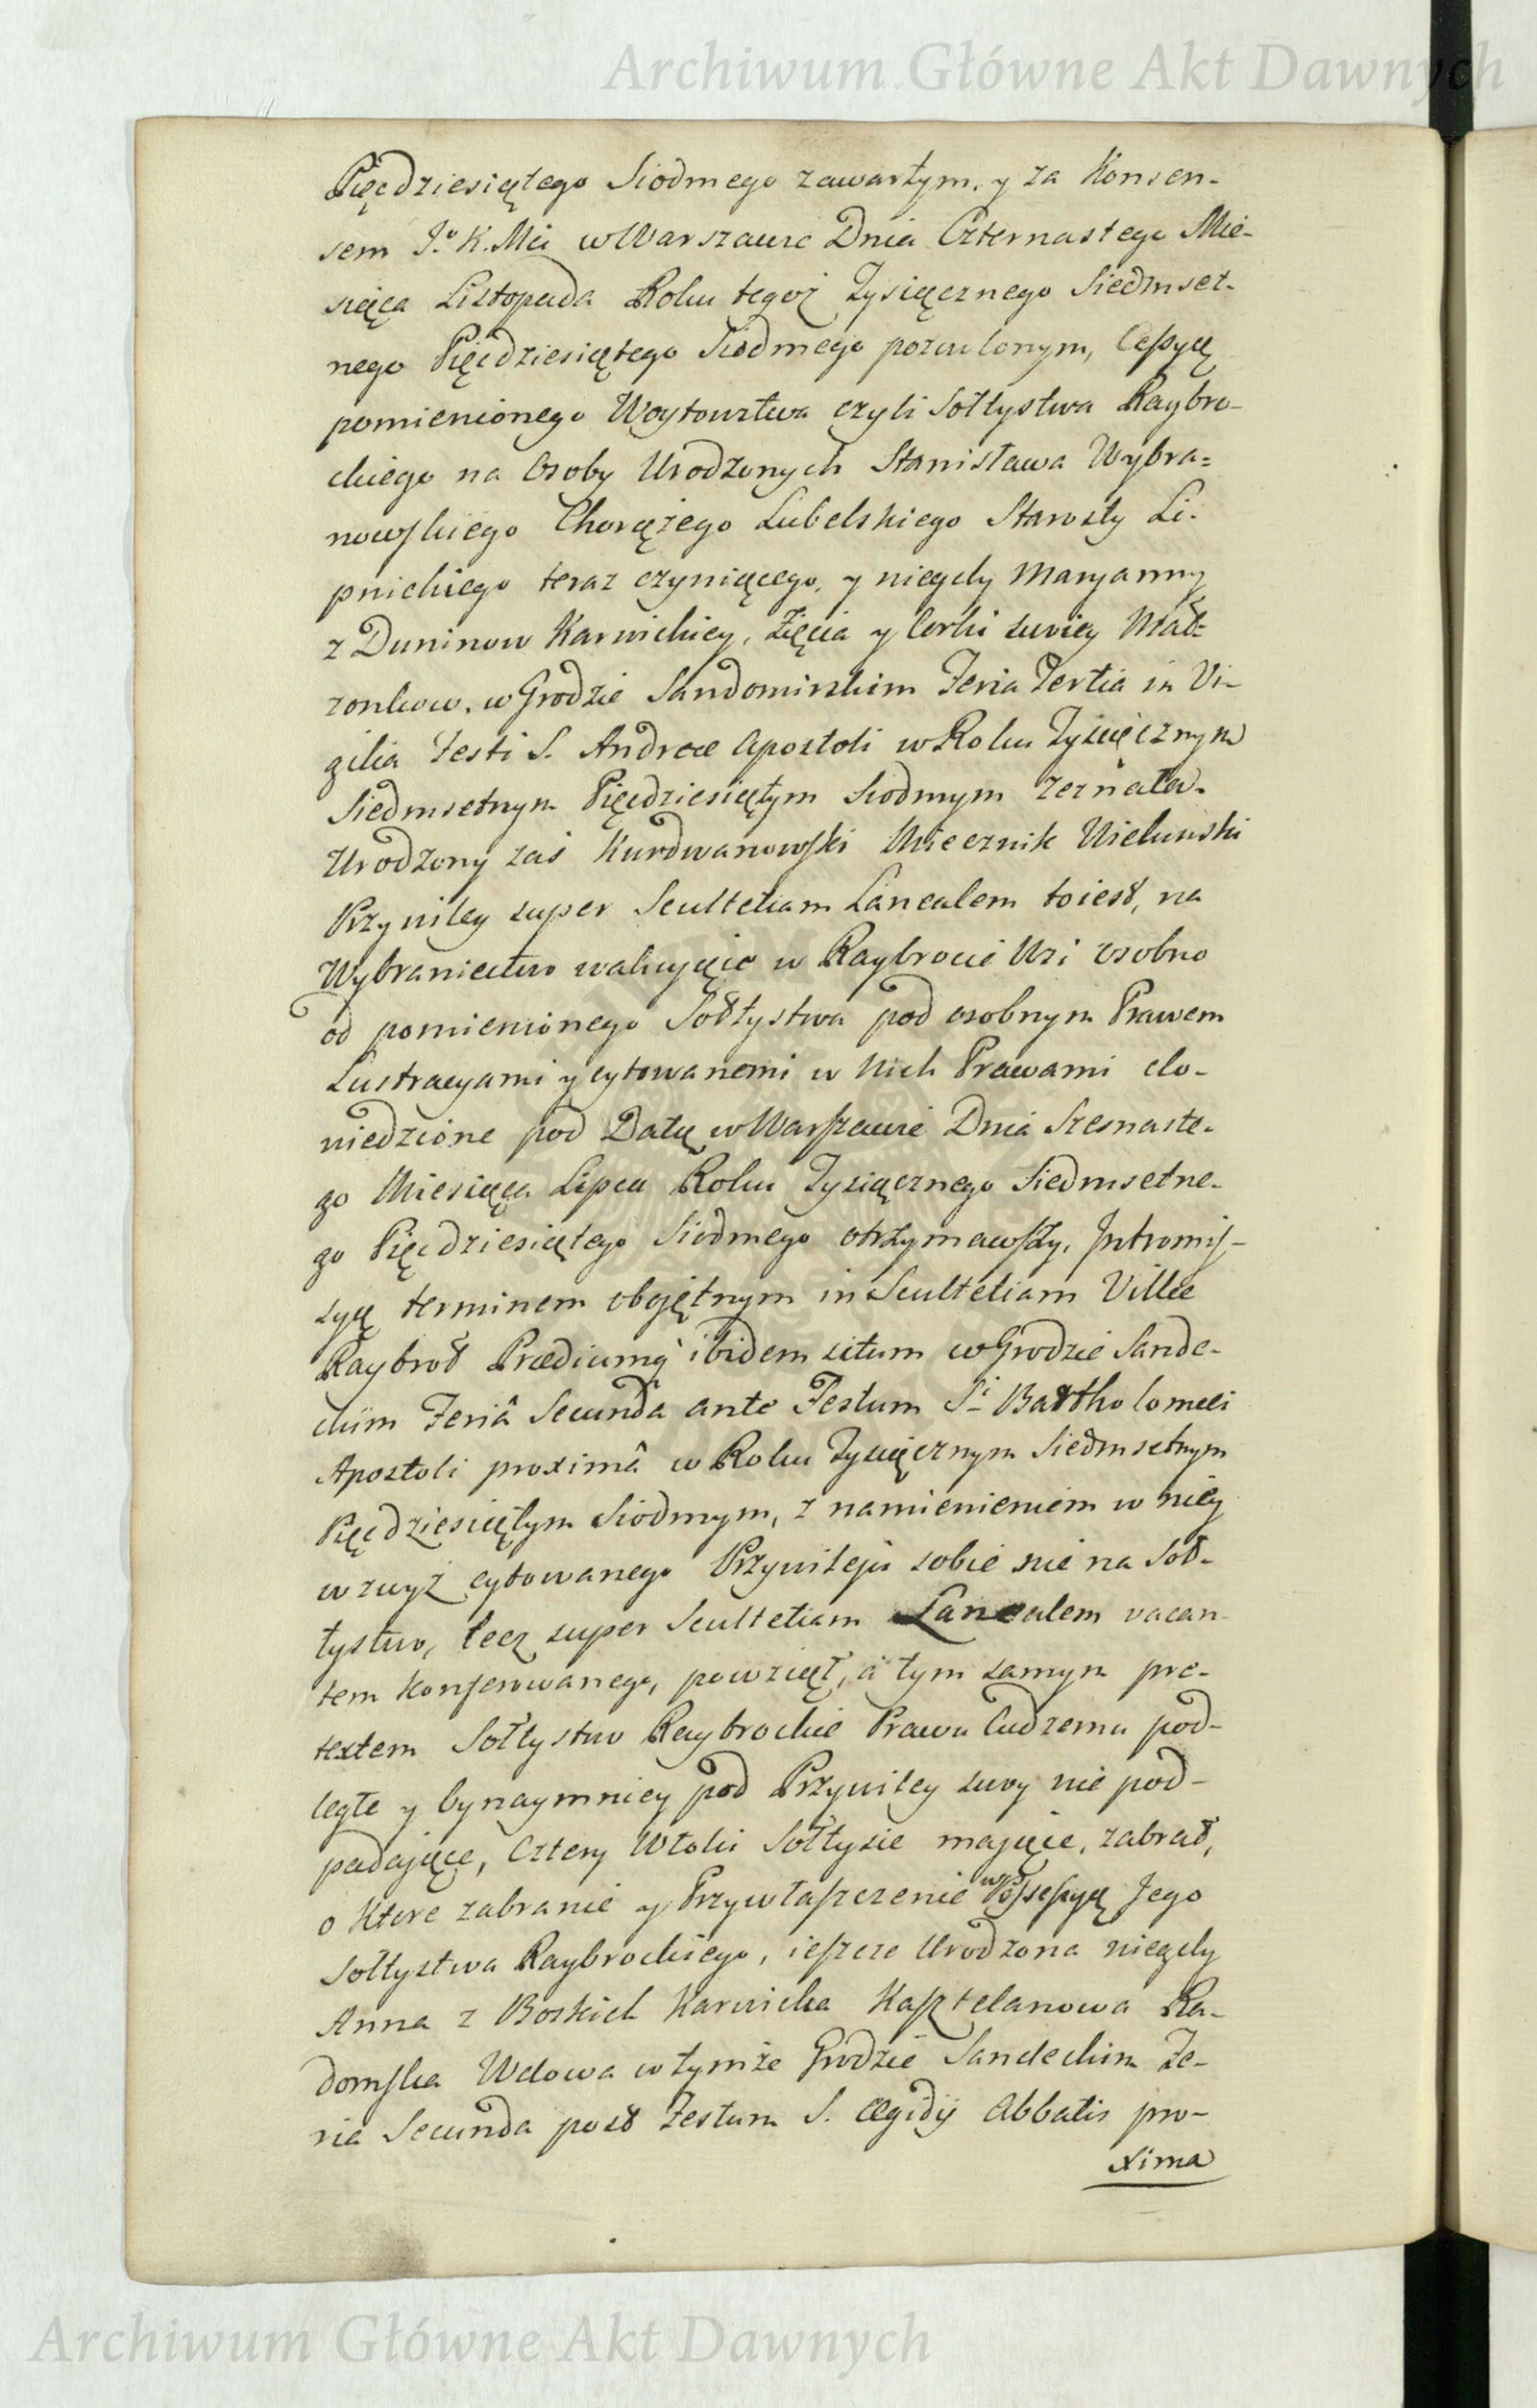 Archiwum Główne Akt Dawnych
Pięcdziesiątego Siodmego zawartym, y za Konsen-
sem J.º K. Mći w Warszawie Dnia Czternastego Mie-
siąca Listopada Roku tegoż Tysiącznego Siedmset-
nego Pięcdziesiątego Siodmego pozwolonym, Cessyą
pomienionego Woytowstwa czyli Sołtystwa Raybro-
ckiego na Osoby Urodzonych Stanisława Wybra=
nowskiego Chorążego Lubelskiego Starosty Li-
pnickiego teraz czyniącego, y niegdy Maryanny
z Duninow Karwickiey, Zięcia y Corki swoiey Mał=
zonkow, w Grodzie Sandomirskim Feria Tertia in Vi-
gilia Festi S. Andreæ Apostoli w Roku Tysiącznym
Siedmsetnym Pięcdziesiątym Siodmym zeznała.
Urodzony zaś Kurdwanowski Miecznik Wielunski
Przywiley super Scultetiam Lanealem toiest, na
Wybraniectwo wakuiące w Raybrocie Wsi osobno
od pomienionego Sołtystwa pod osobnym Prawem
Lustracyami y cytowanemi w Nich Prawami do-
wiedzione pod Datą w Warszawie Dnia Szesnaste-
go Miesiąca Lipca Roku Tysiącznego Siedmsetne-
go Pięcdziesiątego Siodmego otrzymawszy, Intromis-
syą terminem obojętnym in Scultetiam Villæ
Raybrot Prædiumq̀ ibidem situm w Grodzie Sande-
ckim Feriâ Secundâ ante Festum S.i Barthołomæi
Apostoli proximâ w Roku Tysiącznym Siedmsetnym
Pięcdziesiątym Siodmym, z namienieniem w niey
wzwyż cytowanego Przywileju sobie nie na Soł-
tystwo, lecz super Scultetiam Lanealem vacan-
tem Konferowanego, powziął, a tym samym pre-
textem Sołtystwo Raybrockie Prawu Cudzemu pod-
ległe y bynaymniey pod Przywiley swoy nie pod-
padające, Cztery Włoki Sołtysie mające, zabrał,
o Ktore zabranie y Przywłaszczenie w Possessyą Jego
Sołtystwa Raybrockiego, ieszcze Urodzona niegdy
Anna z Boskich Karwicka Kasztelanowa Ra-
domska Wdowa w tymże Grodzie Sandeckim Fe-
ria Secunda post Festum S. Ægidÿ Abbatis pro-
xima
Archiwum Główne Akt Dawnych